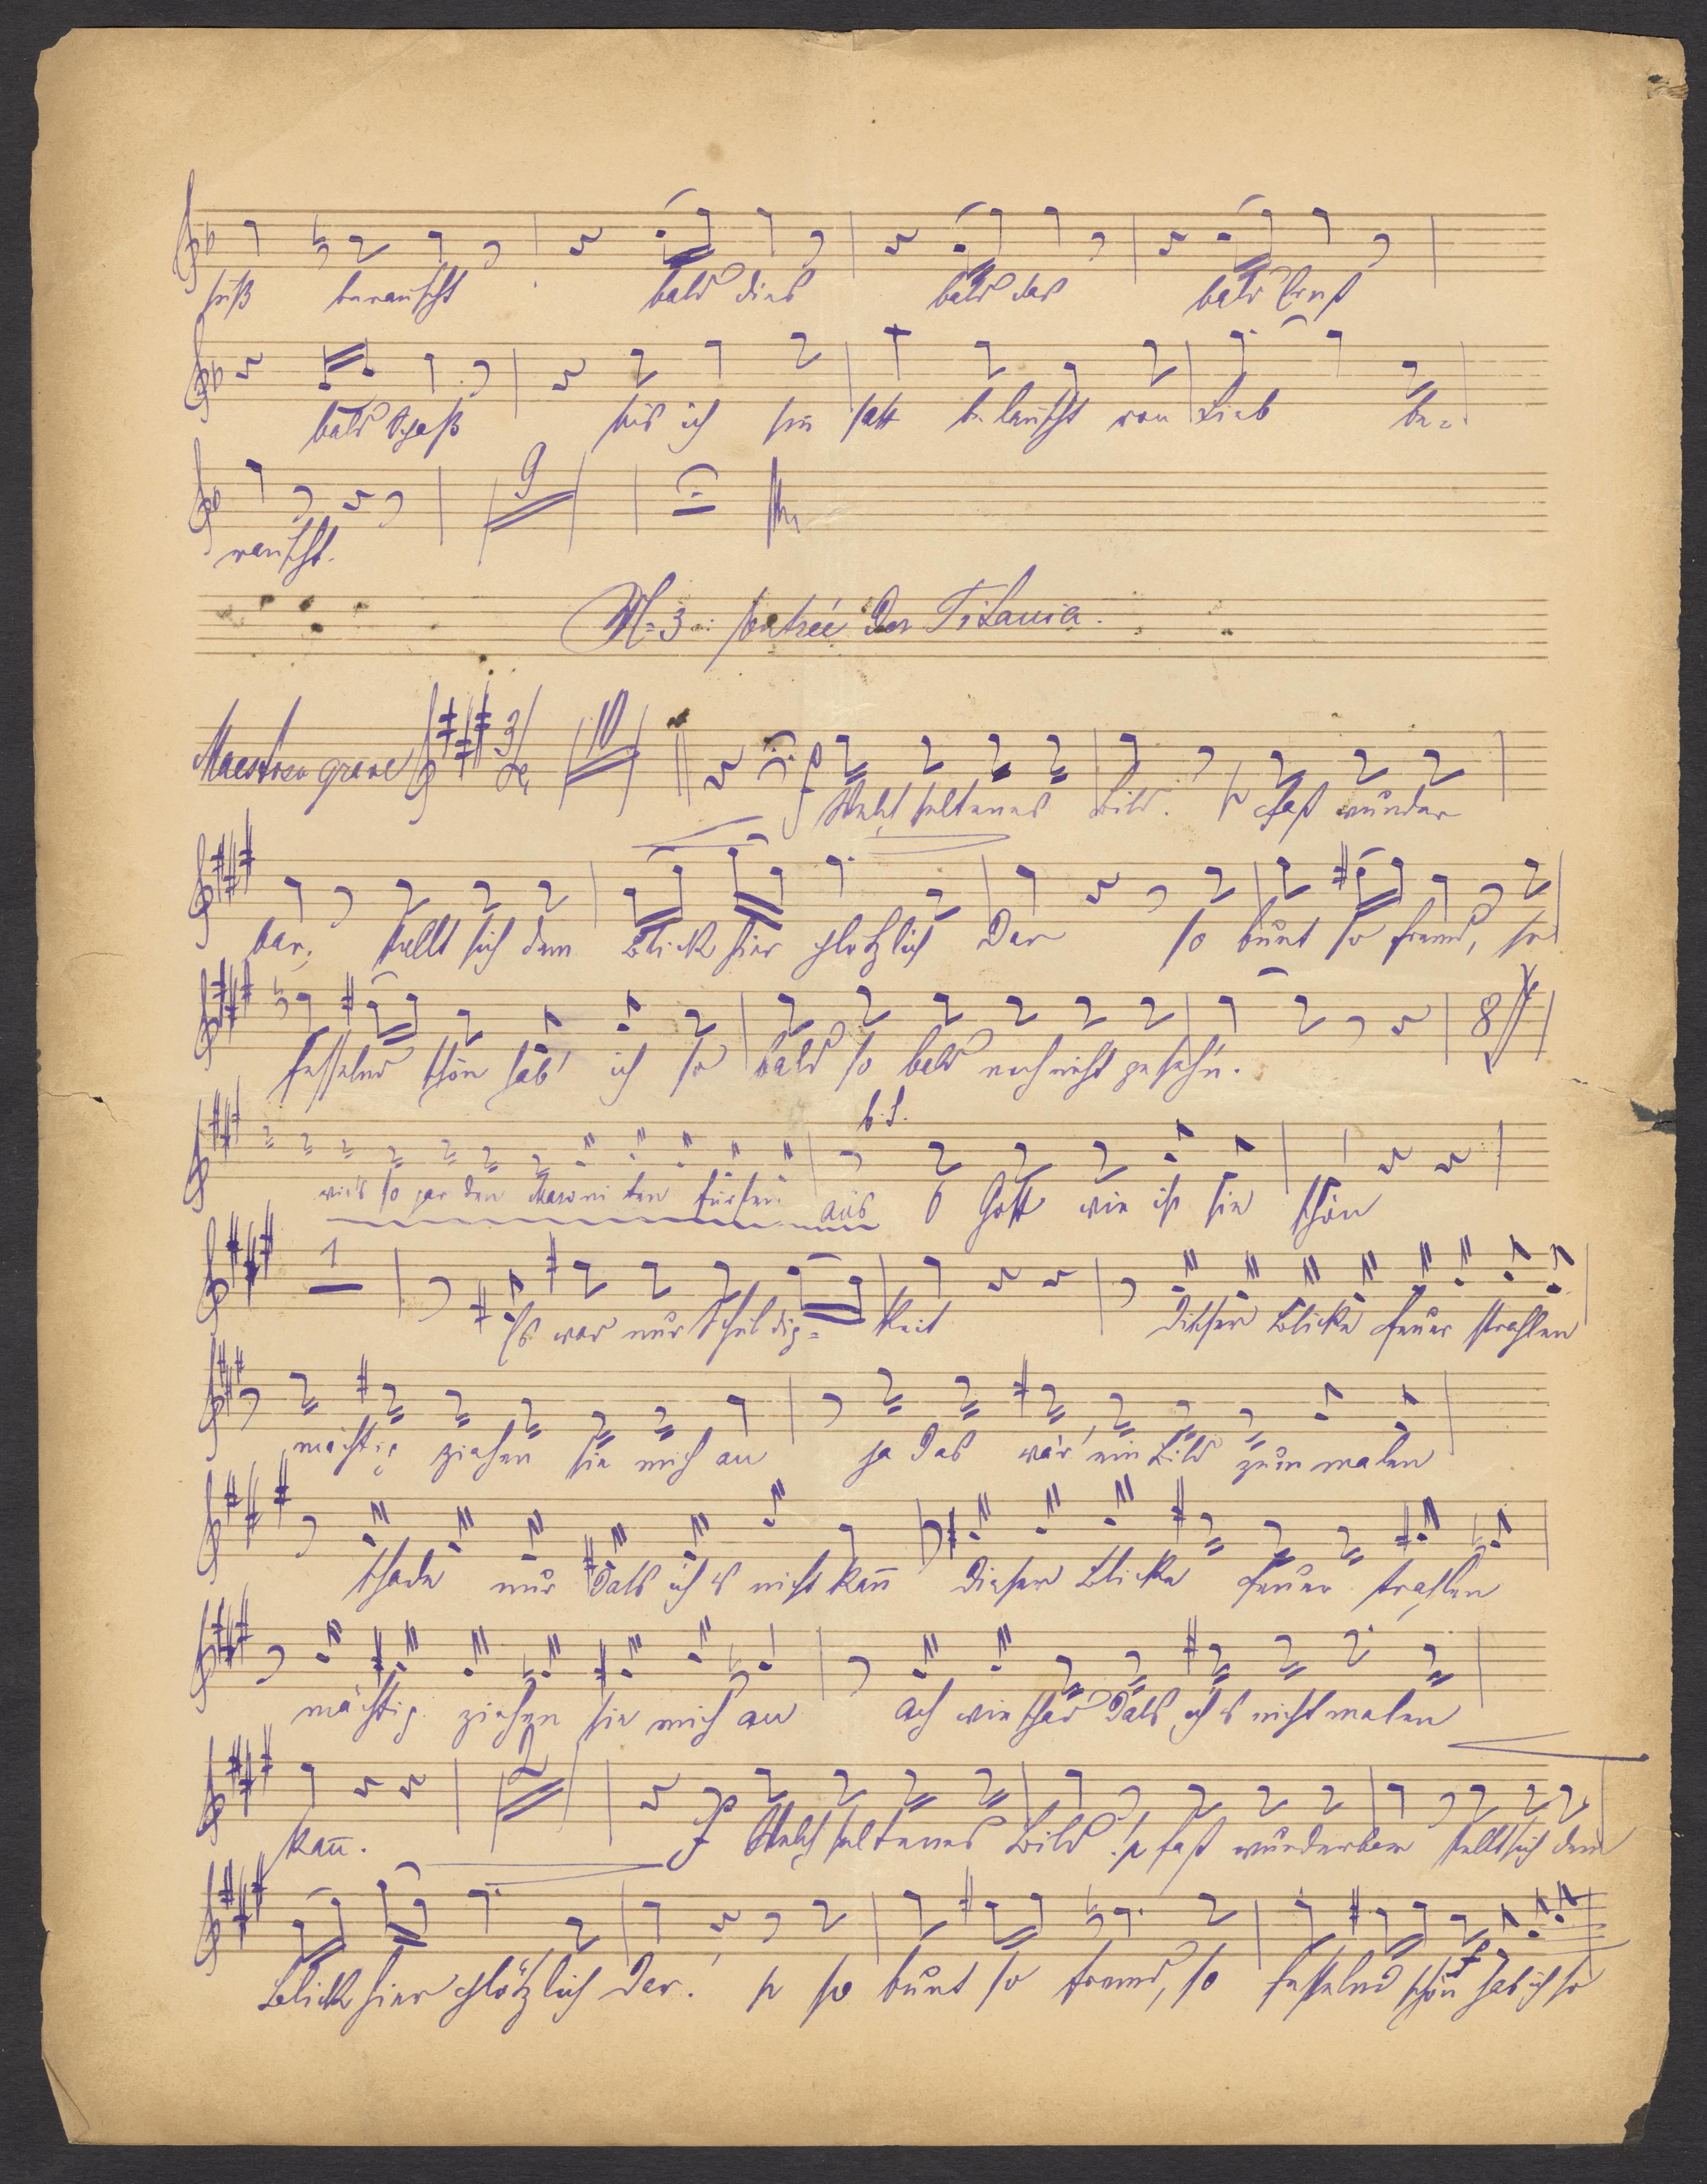 süß berauscht bald dies bald das bald Ernst
bald Spaß bis ich sie satt belauscht von Lieb be=
9
rauscht.
N=3. Entrée der Titania.
Maestoso grave 3/4 10 f Welch seltenes Bild. p fast wunder
bar, stellt sich dem Blick hier plötzlich dar so bunt so fremd, so
fesselnd schön hab' ich so bald so bald noch nicht geseh'n. 8
so gar den aus O Gott wie ist sie schön
1 Es war nur Schuldig= keit dieser Blicke Feuer strahlen
mächtig ziehen sie mich an ja das wär' ein Bild zum malen
schade nur daß ich's nicht kan̄ dieser Blicke Feuer strahlen
mächtig ziehen sie mich an ach wie schad daß ich's nicht malen
2
kan̄. f Welch seltenes Bild! p fast wunderbar stellt sich dem
Blick hier plötzlich dar! p so bunt so fremd, so fesselnd schön f hab ich so